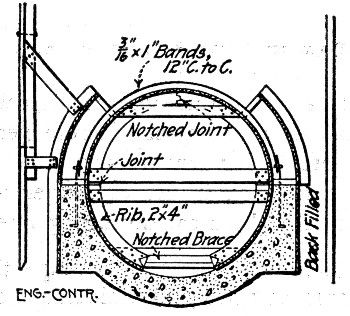 3/16" x 1" Bands,
12" C. to C.
Notched Joint
Joint
Rib, 2"x4"
Notched Brace
Back Filled
ENG.-CONTR.